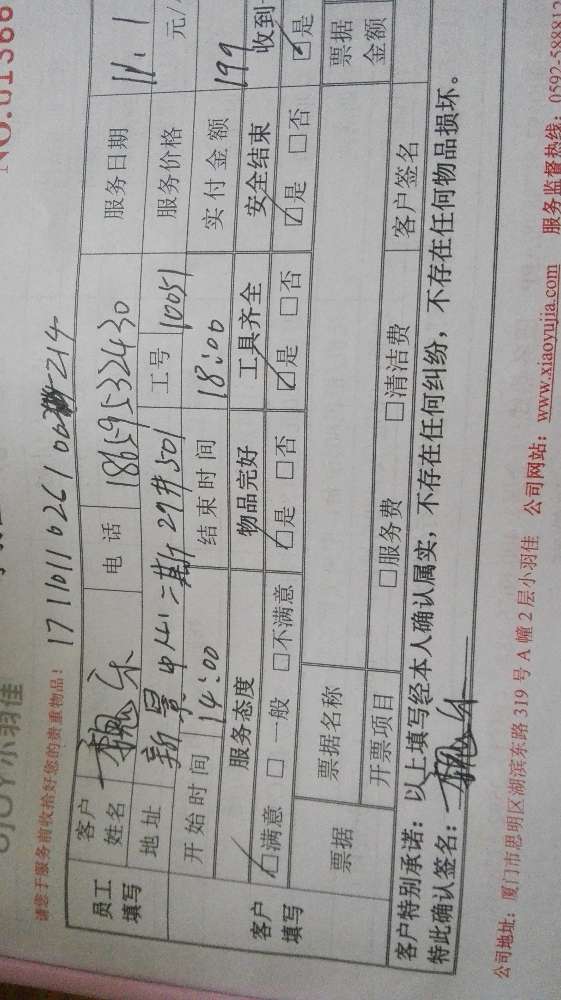 NO.01366
JOY小羽佳
请您于服务前收拾好您的贵重物品！ 1711011026100 214
员工填写 客户姓名 魏乐 电话 18659532430 服务日期 11.1
地址 新景中心二期 29#501 工号 10051 服务价格 元/
开始时间 14:00 结束时间 18:00 实付金额 199
客户填写 服务态度 物品完好 工具齐全 安全结束 收到
☑满意 □一般 □不满意 ☑是 □否 ☑是 □否 ☑是 □否 ☑是
票据 票据名称 票据金额
开票项目 □服务费 □清洁费 客户签名
客户特别承诺：以上填写经本人确认属实，不存在任何纠纷，不存在任何物品损坏。
特此确认签名：魏乐
公司地址：厦门市思明区湖滨东路319号A幢2层小羽佳 公司网站：www.xiaoyujia.com 服务监督热线：0592-588812